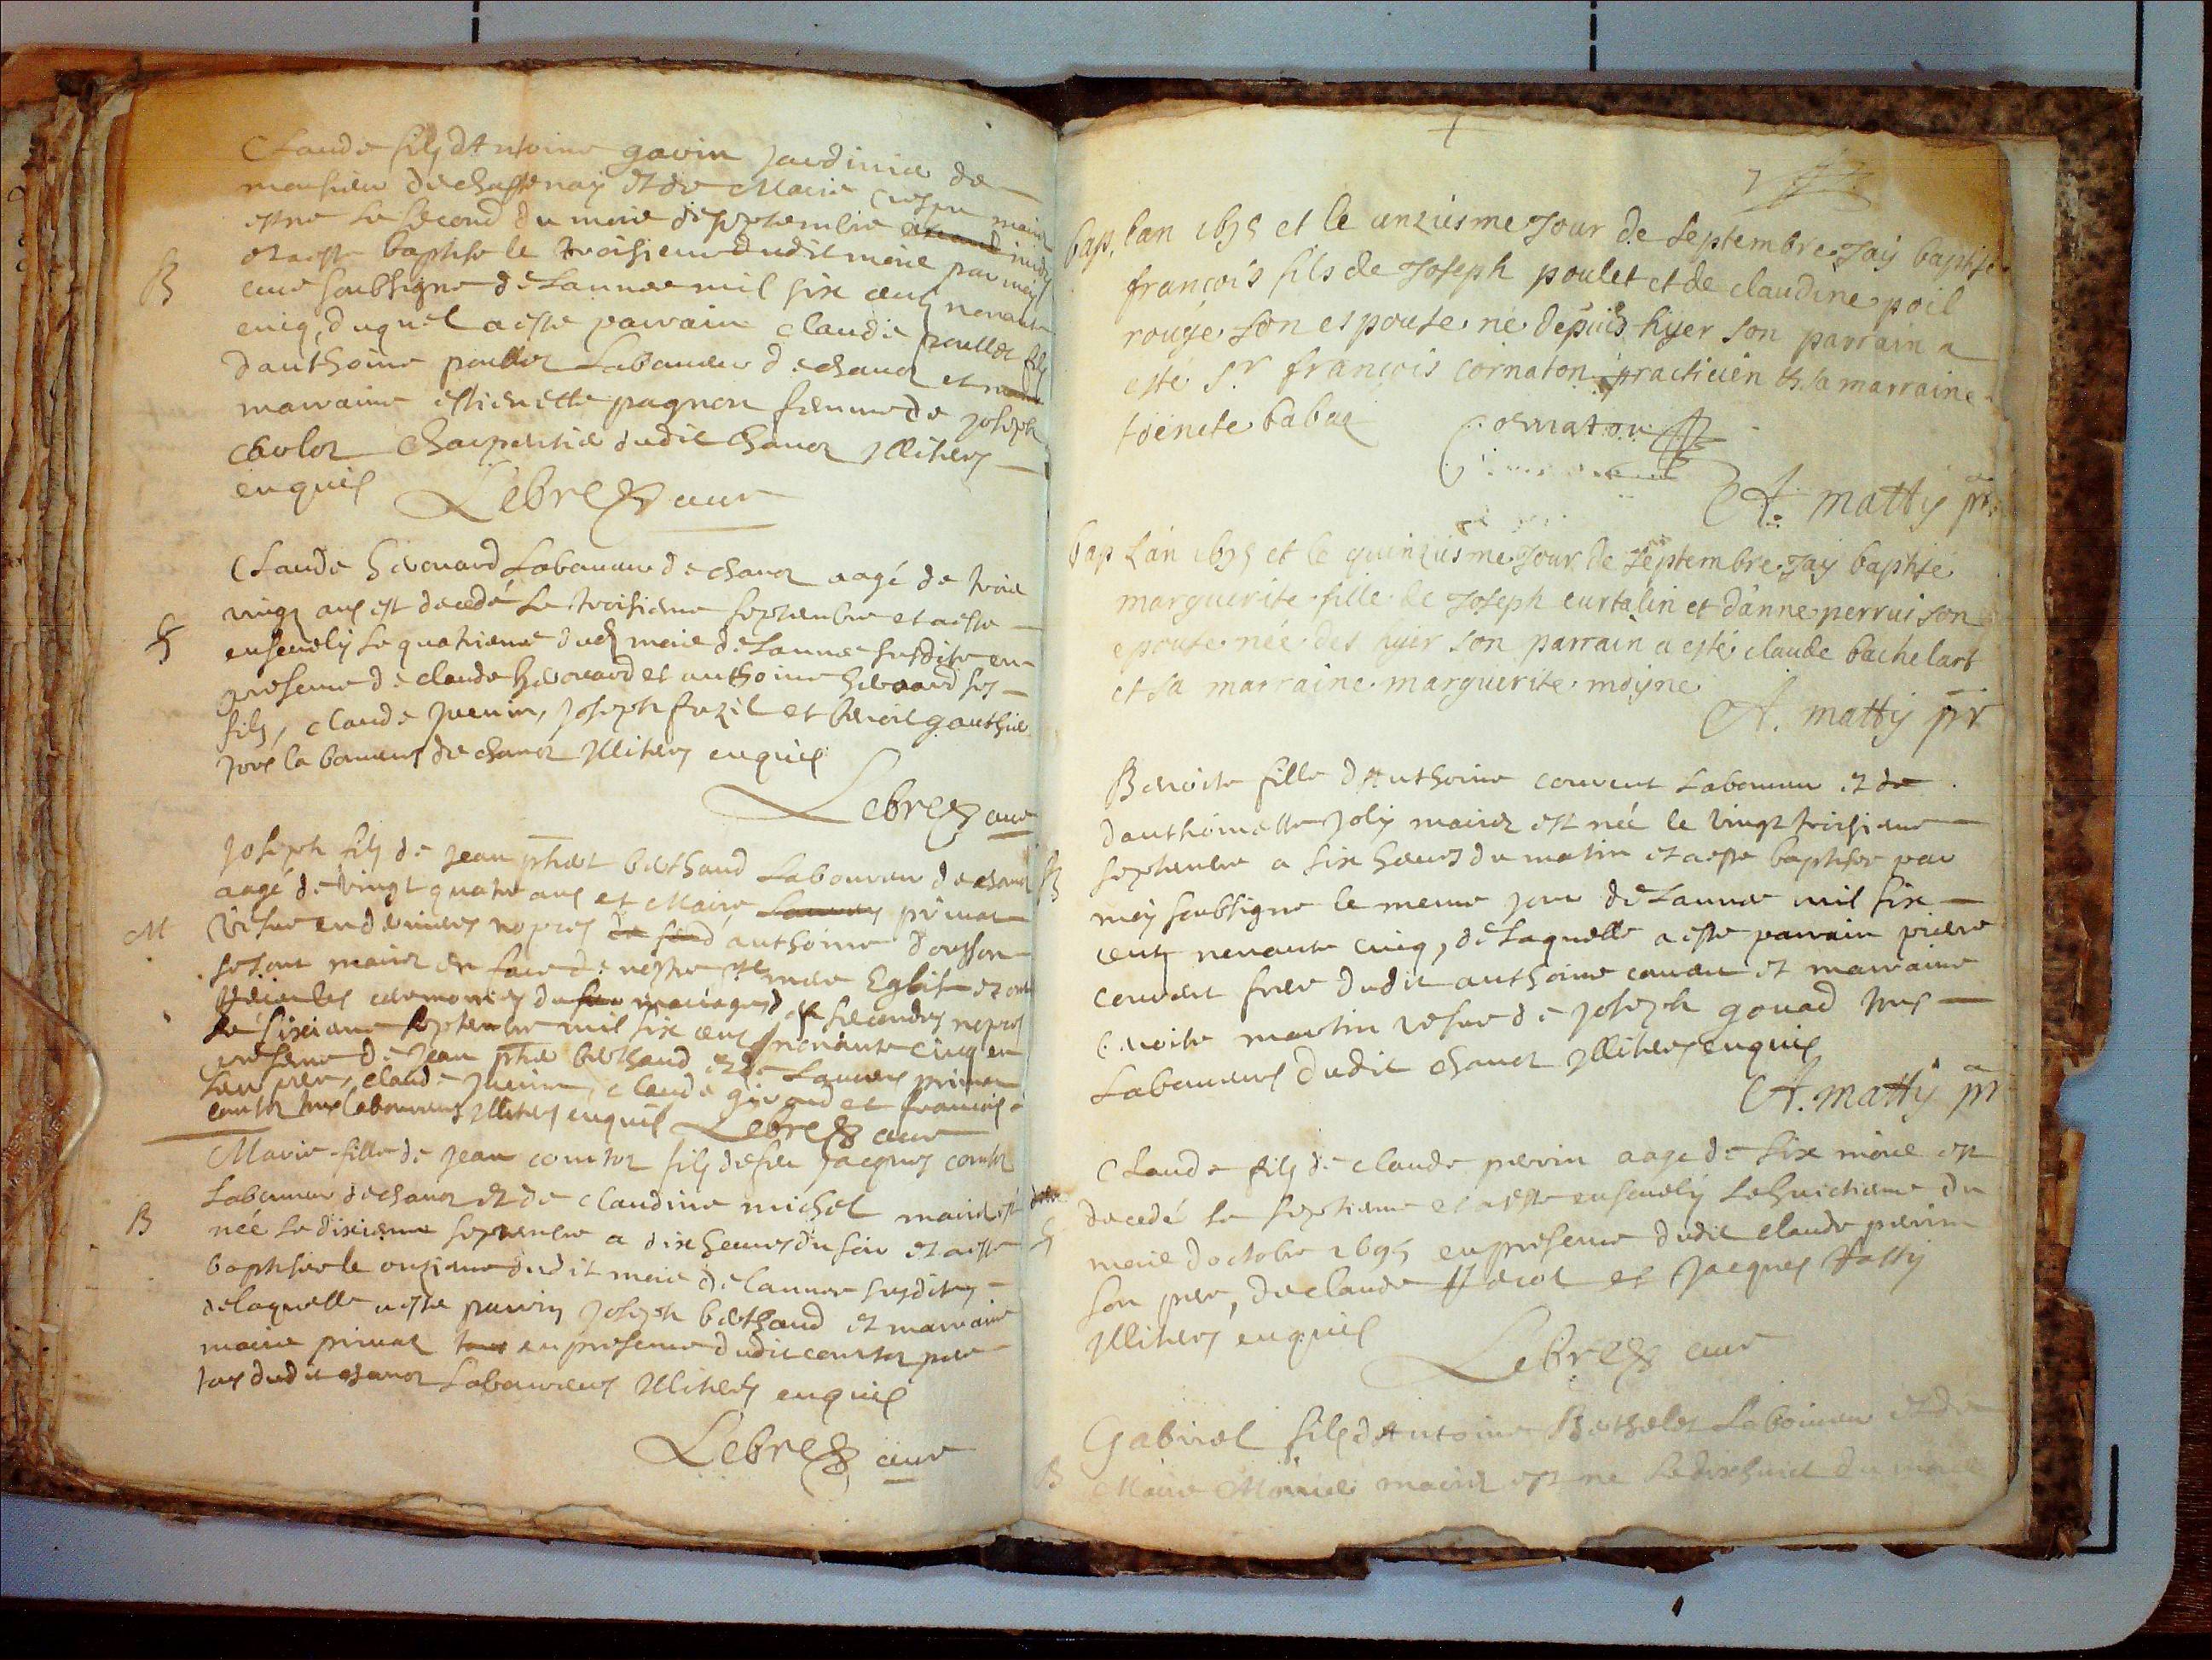 Claude fils dAntoine gavin jardinier de
monsieur de chassenay et de Marie mariez
est ne le second du mois de septembre
et a este baptise le troisieme dudit mois par moy
B
cure soubsigne de lannee mil six cents nonante
cinq, duquel a este parrain claude poullet fils
danthoine poullet laboureur de chanoz et
marraine estiennette pagnon femme de joseph
charpentier dudit chanoz illiteres
enquis Lebrez cure
Claude laboureur de chanoz aagé de trois
vingt ans est decedé le troisieme septembre et a este
S
ensevely le quatrieme dud mois de lannee susdite en
presence de claude et anthoine ses
fils, claude juenin, joseph fuzil et benoit gauthier
tous laboureurs de chanoz illiteres enquis
Lebrez cure
Joseph fils de jean phet berthaud laboureur de chanoz
aagé de vingt quatre ans et Marie primat
M
vefve en dernieres nopces anthoine
se sont mariez en face de nostre mere Eglise et ont
les ceremonies du mariage de secondes nopces
le sixieme septembre mil six cens nonante cinq en
presence de jean berthaud et de primat
leur pere, claude juenin, claude giroud et francois
comtet tous laboureurs illiteres enquis Lebrez cure
Marie fille de jean comtet fils de feu jacques comtet
laboureur de chanoz et de claudine michel mariez est
B
née le dixieme septembre a dix heures du soir et a este
baptisee le onzieme dudit mois de lannee susdite
de laquelle a este parrin joseph berthaud et marraine
marie primat en presence dudit comtet pere
tous dudit chanoz laboureurs illiteres enquis
Lebrez cure
7
bap. lan 1695 et le unziesme Jour de septembre Jay baptise
francois fils de Joseph poulet et de claudine poil
rouge son espouse né depuis hyer son parrain a
esté Sr francois cornaton practicien et sa marraine
toinete babad
Cornaton
A. matty pr
bap Lan 1695 et le quinziesme Jour de septembre Jay baptise
marguerite fille de Joseph curtalin et danne perrui son
epouse née des hyer son parrain a esté claude bachelart
et sa marraine marguerite moyne
A. matty pr
Benoite fille dAnthoine convert laboureur et de
danthoinette joly mariez est née le vingt troisieme
B
septembre a six heures du matin et a este baptisee par
moy soubsigne le mesme jour de lannee mil six
cents nonante cinq, de laquelle a este parrain pierre
convert frere dudit anthoine convert et marraine
benoite martin vefve de joseph gouad tous
laboureurs dudit chanoz illiteres enquis
A. matty pr
Claude fils de claude perrin aage de six mois est
decedé le septieme et a este ensevely le huictieme du
S
mois doctobre 1695 en presence dudit claude perrin
son pere, de claude et jacques
illiteres enquis
Lebrez cure
Gabriel fils dAntoine Berthelet laboureur et de
B
Marie mariez est ne le dixhuict du mois